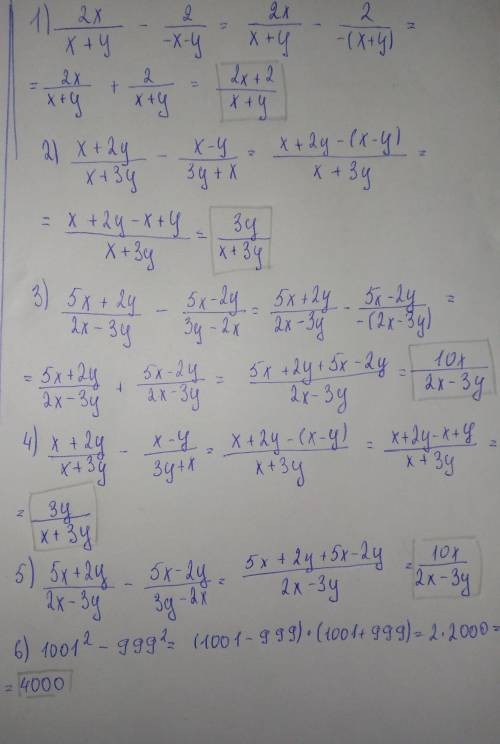 1) 2x/(x+y) - 2/(-x-y) = 2x/(x+y) - 2/(-(x+y)) =
= 2x/(x+y) + 2/(x+y) = (2x+2)/(x+y)
2) (x+2y)/(x+3y) - (x-y)/(3y+x) = (x+2y-(x-y))/(x+3y) =
= (x+2y-x+y)/(x+3y) = 3y/(x+3y)
3) (5x+2y)/(2x-3y) - (5x-2y)/(3y-2x) = (5x+2y)/(2x-3y) - (5x-2y)/(-(2x-3y)) =
= (5x+2y)/(2x-3y) + (5x-2y)/(2x-3y) = (5x+2y+5x-2y)/(2x-3y) = 10x/(2x-3y)
4) (x+2y)/(x+3y) - (x-y)/(3y+x) = (x+2y-(x-y))/(x+3y) = (x+2y-x+y)/(x+3y) =
= 3y/(x+3y)
5) (5x+2y)/(2x-3y) - (5x-2y)/(3y-2x) = (5x+2y+5x-2y)/(2x-3y) = 10x/(2x-3y)
6) 1001² - 999² = (1001-999)·(1001+999) = 2·2000 =
= 4000